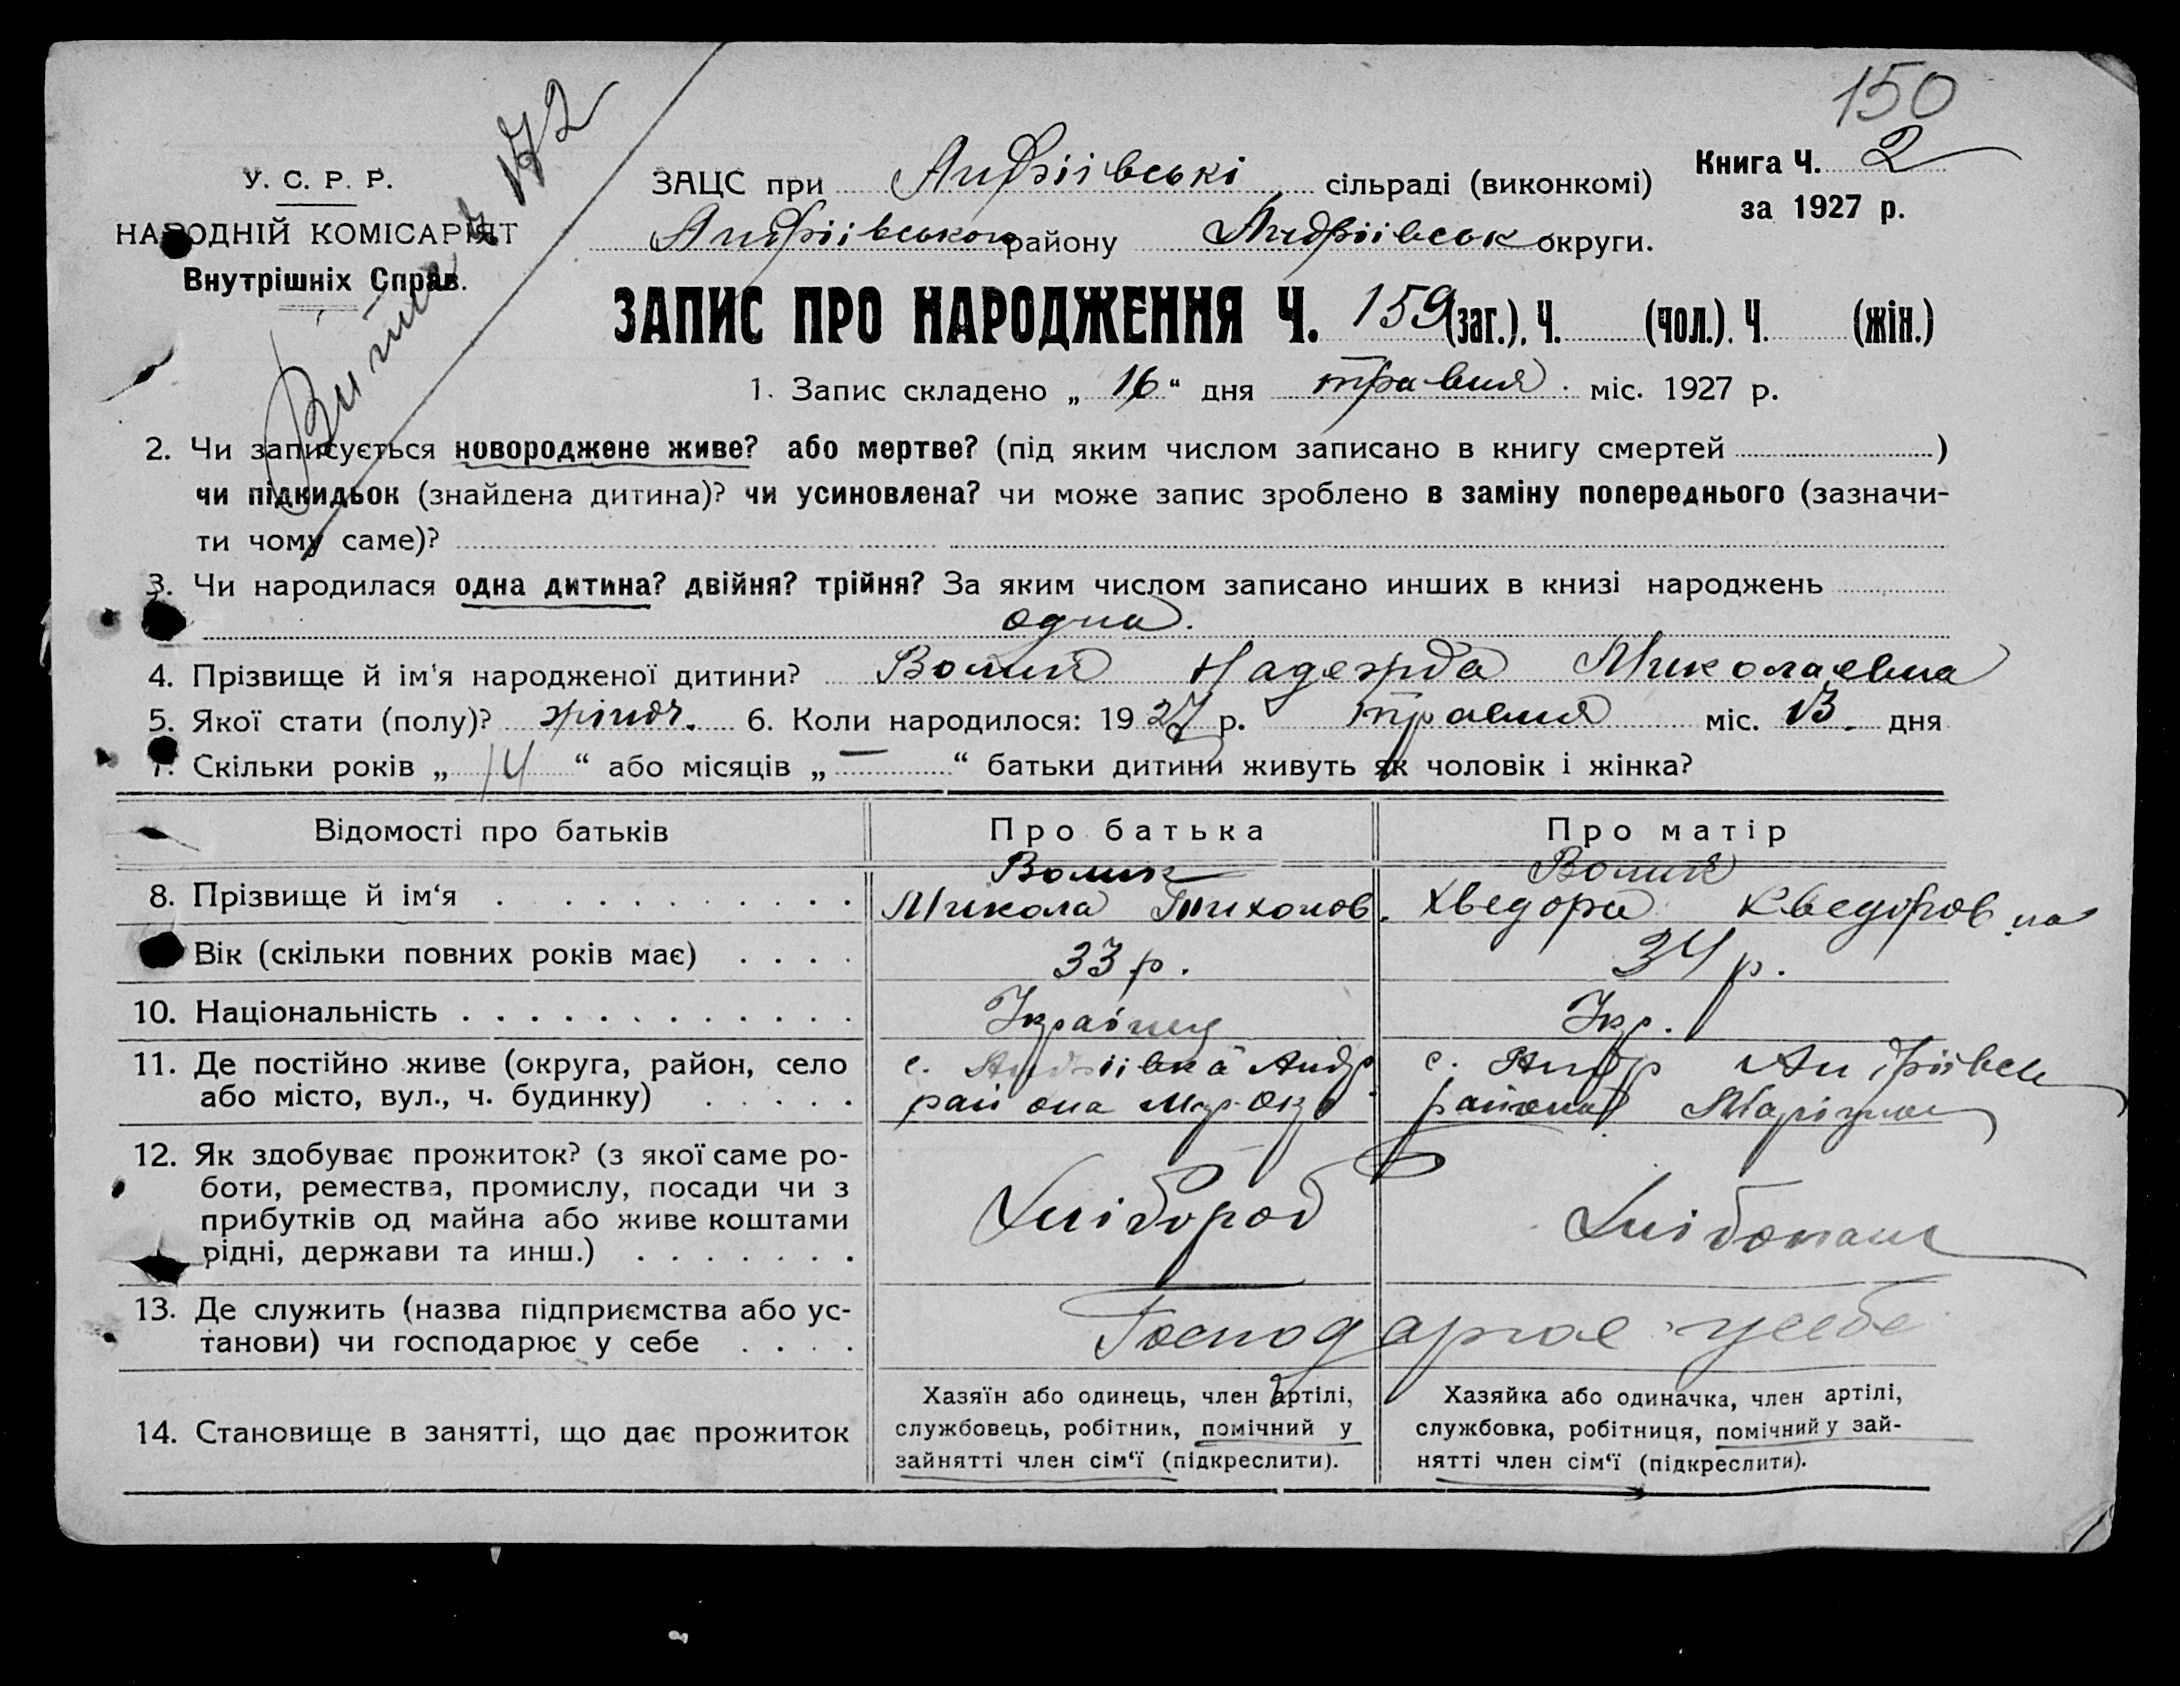 150
У. С. Р. Р.
НАРОДНІЙ КОМІСАРІЯТ
Внутрішніх Справ.
172
ЗАЦС при Андріівські сільраді (виконкомі)
Книга Ч. 2
за 1927 р.
Андріівського району Андріівськ округи.
ЗАПИС ПРО НАРОДЖЕННЯ Ч. 159 (заг.), Ч. (чол.). Ч. (жін.)
1. Запис складено „ 16 “ дня травня міс. 1927 р.
2. Чи записується новороджене живе? або мертве? (під яким числом записано в книгу смертей )
чи підкидьок (знайдена дитина)? чи усиновлена? чи може запис зроблено в заміну попереднього (зазначи-
ти чому саме)?
3. Чи народилася одна дитина? двійня? трійня? За яким числом записано инших в книзі народжень
одна.
4. Прізвище й ім'я народженої дитини? Волик Надежда Миколаевна
5. Якої стати (полу)? жіноч. 6. Коли народилося: 1927 р. травня міс. 13. дня
7. Скільки років „ 14 “ або місяців „ — “ батьки дитини живуть як чоловік і жінка?
Відомості про батьків Про батька Про матір
8. Прізвище й ім‘я Волик Микола Тихонов. Волик Хведора Хведоровна
Вік (скільки повних років має) 33 р. 34 р.
10. Національність Українец Укр.
11. Де постійно живе (округа, район, село
або місто, вул., ч. будинку)
с. Андріівка Андр
района Мар. Окр
с. Андр Андріівськ
района
12. Як здобуває прожиток? (з якої саме ро-
боти, ремества, промислу, посади чи з
прибутків од майна або живе коштами
рідні, держави та инш.)
Хлібороб
13. Де служить (назва підприємства або ус-
танови) чи господарює у себе
Господарює у себе
14. Становище в занятті, що дає прожиток
Хазяїн або одинець, член артілі,
службовець, робітник, помічний у
зайнятті член сім‘ї (підкреслити).
Хазяйка або одиначка, член артілі,
службовка, робітниця, помічний у зай-
нятті член сім‘ї (підкреслити).